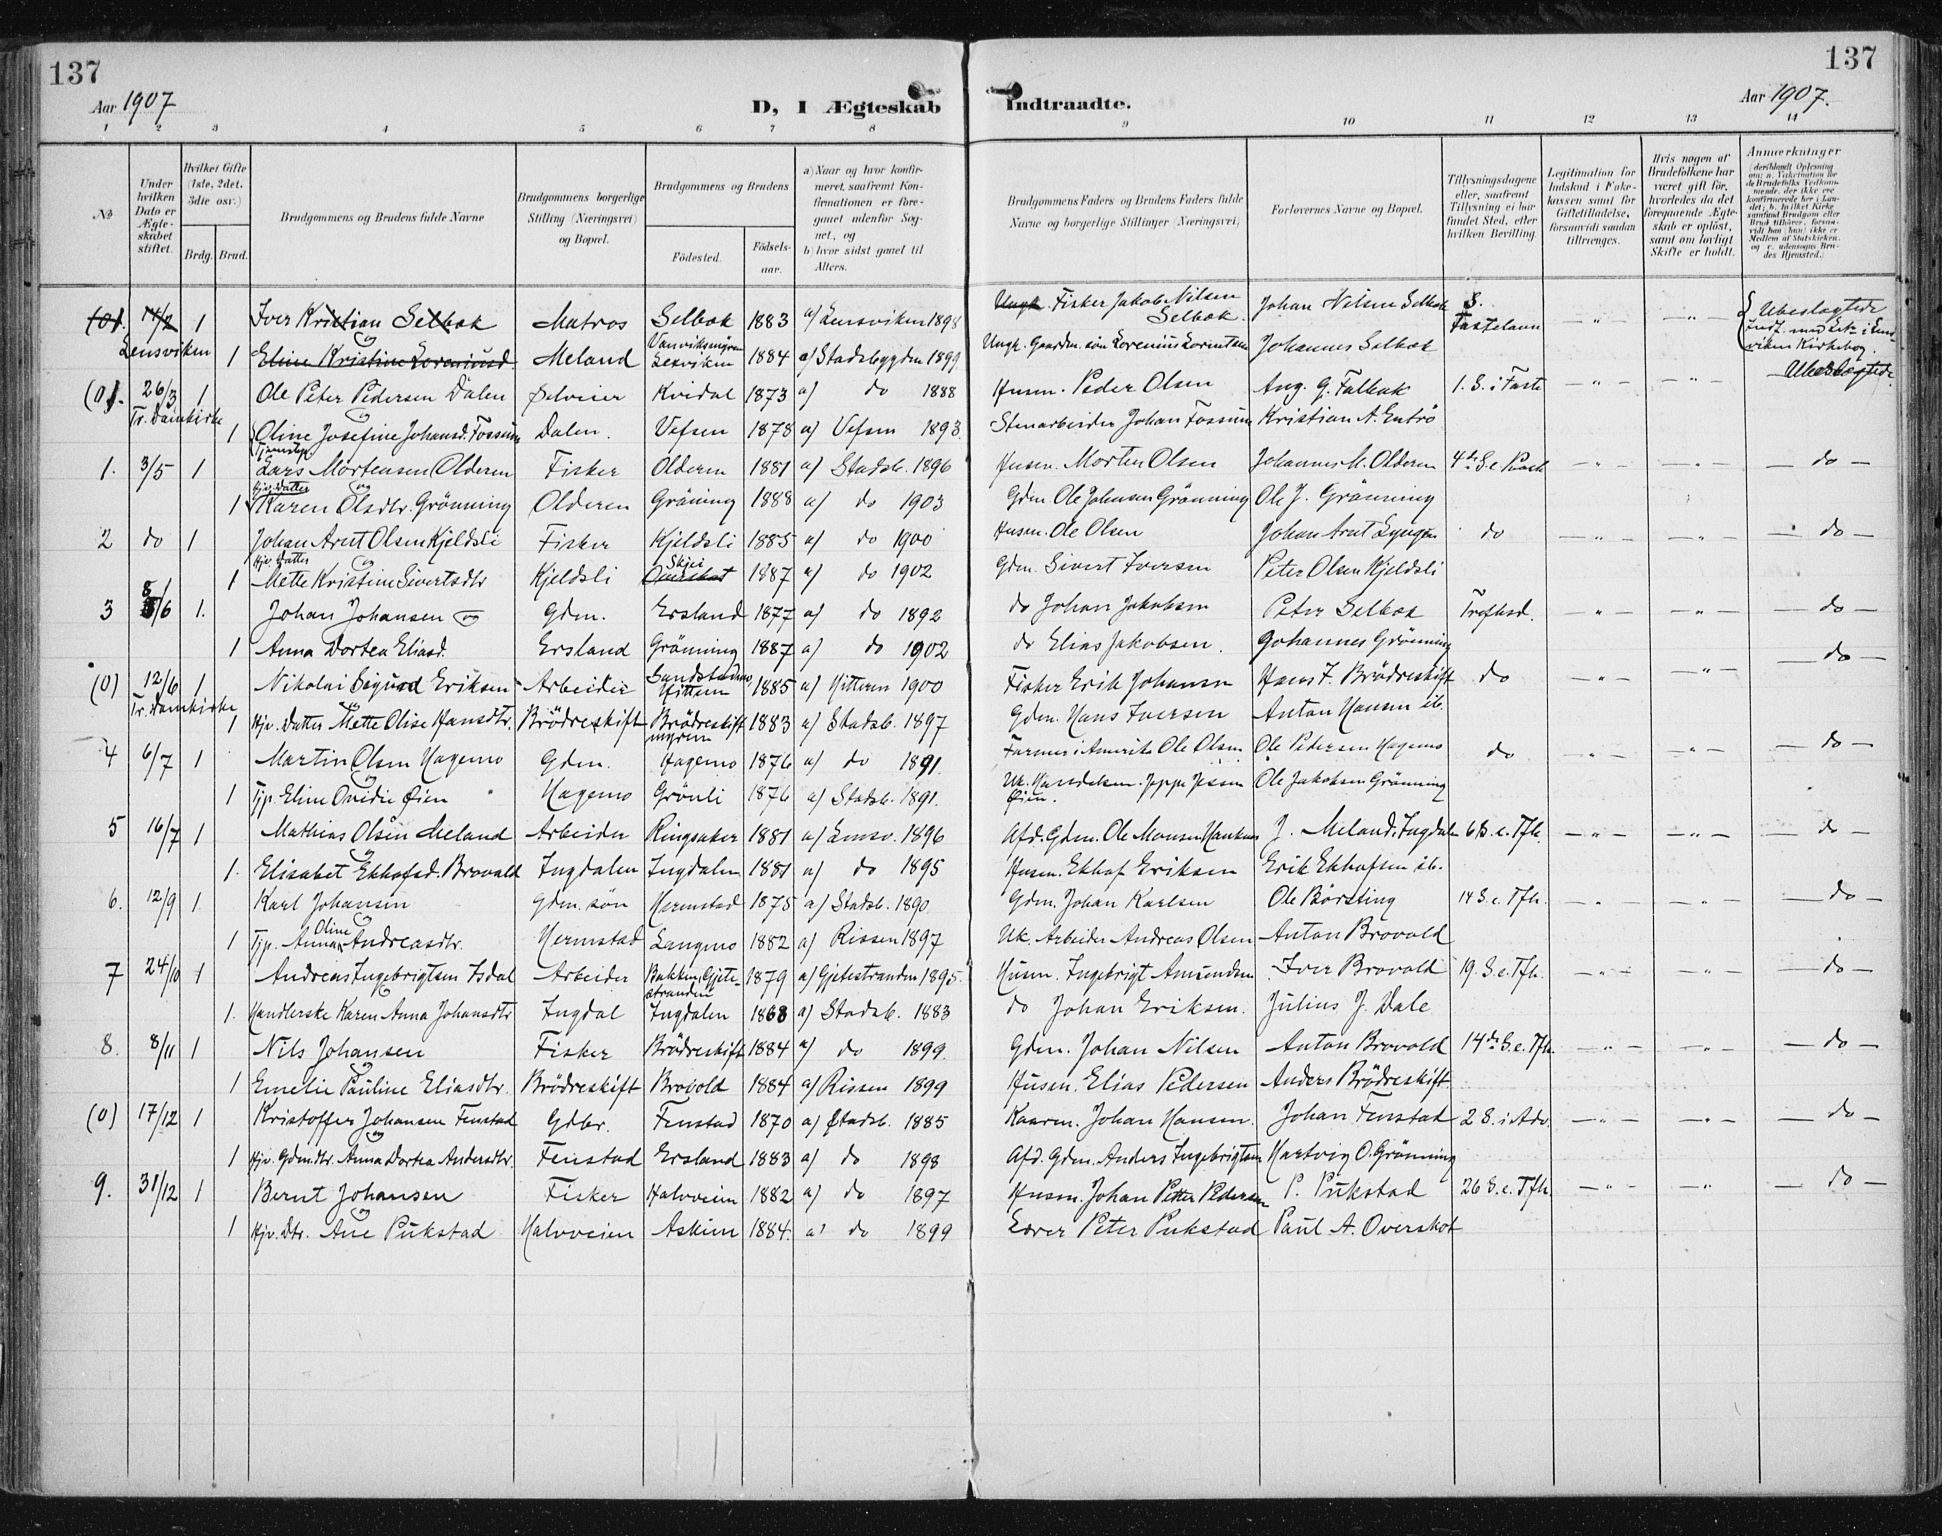 137
137
Aar 1907
D, I Ægteskab Indtraadte.
Aar 1907.
1 2 3 4 5 6 7 8 9 10 11 12 13 14
No
Under hvilken Dato er Ægteskabet stiftet.
Hvilket Gifte (1ste, 2det, 3die osv.)
Brdg. Brud.
Brudgommens og Brudens fulde Navne
Brudgommens borgerlige Stilling (Næringsvei) og Bopæl.
Brudgommens og Brudens
Fødested. Fødselsaar.
a) Naar og hvor konfirmeret, saafremt Konfirmationen er foregaaet udenfor Sognet, og
b) hvor sidst gaaet til Alters.
Brudgommens Faders og Brudens Faders fulde Navne og borgerlige Stillinger (Næringsvei)
Forlovernes Navne og Bopæl.
Tillysningsdagene eller, saafremt Tillysning ei har fundet Sted, efter hvilken Bevilling.
Legitimation for Indskud i Enkekassen samt for Giftetilladelse, forsaavidt saadan tiltrænges.
Hvis nogen af Brudefolkene har været gift før, hvorledes da det foregaaende Ægteskab er opløst, samt om lovligt Skifte er holdt.
Anmærkninger
(deriblandt Oplysning om: a. Vakcination for de Brudefolks Vedkommende, der ikke ere konfirmerede her i Landet; b. hvilket Kirkesamfund Brudgom eller Brud tilhører, forsaavidt han (hun) ikke er Medlem af Statskirken, og c. udensogns Brudes Hjemsted.)
(0). 1 Iver Kristian Selbak Matros Selbak 1883 a) Lensviken 1898 Fisker Jakob Nilsen Selbak. Johan Nilsen Selbak S. Fastelavn — " — — " — Ubeslægtede
Lensviken 1 Eline Kristine Lorentsd. Meland Vanviksmyren Lexviken 1884 a) Stadsbygden 1899 Johannes Selbak viken Kirkebog.
(0). 26/3 1 Ole Peter Pedersen Dalen Kvidal 1873 a) do 1888 Husm. Peder Olsen Aug. G. Falbak 1. S. i Faste — " — — " — Ubeslægtede.
Tr. Domkirke 1 Oline Josefine Johansd. Fossum Dalen. Vefsen 1878 a) Vefsen 1893. Stenarbeider Johan Fossum Kristian A. Entrö
1. 3/5 1 Lars Mortensen Olderen Fisker Olderen 1881 a) Stadsb. 1896 Husm. Morten Olsen Johannes M. Olderen 4de S. e. Paask — " — — " — — do —
Hjv. Datter
1 Karen Olsdtr. Grönning Olderen Gröning 1888 a) do 1903 Gdm. Ole Johnsen Grönning Ole J. Grönning
2 do 1 Johan Arnt Olsen Kjeldsli Fisker Kjeldsli 1885 a) do 1900 Husm. Ole Olsen Johan Arnt do — " — — " — — do —
Hjv. Datter
1 Mette Kristine Sivertsdtr Kjeldsli Skjei Overskot 1887 a) do 1902 Gdm. Sivert Iversen Peter Olsen Kjeldsli
3 8/6 1. Johan Johansen og Gdm. Ersland 1877 a) do 1892 do Johan Jakobsen Peter Selbak Trefhsd. " — — " — — do —
1 Anna Dortea Eliasd. Ersland Grönning 1887 a) do 1902 do Elias Jakobsen. Johannes Grönning
(0) 12/6 1 Nikolai Sigurd Eriksen Arbeider Hittern 1885 a) Hitteren 1900 Fisker Erik Johansen Hans I. Brödreskift do — " — — " — — do —
Tr. Domkirke 1 Hjv. Datter Mette Olise Hansdtr. Brödreskift Brödreskiftmyren 1883 a) Stadsb. 1897 Gdm. Hans Iversen Anton Hansen ib.
4 6/7 1 Martin Olsen Hagemo Gdm. Hagemo 1876 a) do 1891. Farmer i Amerika Ole Olsen Ole Pedersen Hagemo do " — — " — — do —
1 Tjp. Eline Ovidie Øien Hagemo Grönli 1876 a) Stadsb. 1891. Uk. Handelsm. Jeppe Øien. Ole Jakobsen Grönning
5 16/7 1 Mathias Olsen Meland Arbeider Ringsaker 1881 a) Lensv. 1896 Afd. Gdm. Ole Monsen J. Meland, Ingdalen 6 S. e. Tfh. — " — — " — — do —
1. Elisabet Ekhofsd. Brovald Ingdalen Ingdalen 1881 a) do 1895 Husm. Ekhof Eriksen Erik Ekhofsen ib.
6. 12/9 1 Karl Johansen Gdm. søn Hermstad 1875 a) Stadsb. 1890. Gdm. Johan Karlsen Ole Börsting 14 S. e. Tfh. — " — " — — do —
1 Tjp. Anna Oline Andreasdtr. Hermstad Langmo 1882 a) Rissen 1897 Uk. Arbeider Andreas Olsen Anton Brovold
7 24/10 1 Andreas Ingebrigtsen Isdal Arbeider Bakken, Gjetestranden 1879 a) Gjetestranden 1895. Husm. Ingebrigt Amundsen Iver Brovold 19. S. e. Tfh. — " — — " — — do —
1. Handlerske Karen Anna Johansdtr Ingdal Ingdalen 1868 a) Stadsb. 1883 do Johan Eriksen. Julius J. Dale
8. 8/11 1 Nils Johansen Fisker Brödreskift 1884 a) do 1899. Gdm. Johan Nilsen Anton Brovold 14de S. e. Tfh. — " — — " — — do —
1 Emelie Pauline Eliasdtr. Brödreskift Brovold 1884 a) Rissen 1899 Husm. Elias Pedersen Anders Brödreskift
(0) 17/12 1 Kristoffer Johansen Fenstad Gdbr. Fenstad 1870 a) Stadsb. 1885 Kaarm. Johan Hansen. Johan Fenstad 2 S. i Adv. — " — — " — — do —
1 Hjv. Gdm.dtr. Anna Dortea Andersdtr. Fenstad Ersland 1883 a) do 1898 Afd. Gdm. Anders Ingebrigtsen Hartvig O. Grönning
9. 31/12 1 Bernt Johansen Fisker Halvveien 1882 a) do 1897 Husm. Johan Petter Pedersen P. Pukstad 26 S. e. Tfh. — " — — " — — do —
1 Hjv. Dtr. Ane Pukstad Halvveien Askim 1884. a) do 1899 Lærer Peter Pukstad Paul A. Overskot